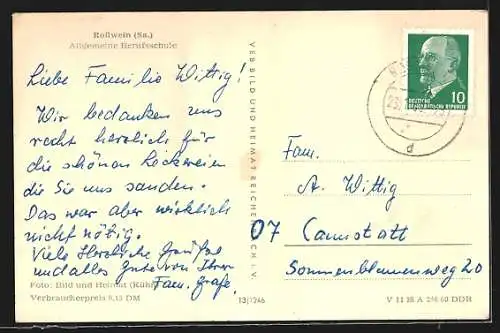 Roßwein (Sa.)
Allgemeine Berufsschule
Liebe Familie Wittig!
Wir bedanken uns
recht herzlich für
die schönen Leckereien
die Sie uns sanden.
Das war aber wirklich
nicht nötig.
Viele Herzliche Grüße
und alles Gute von Ihrer
Fam. Grafe.
Foto: Bild und Heimat
Verbraucherpreis 0,15 DM
VEB BILD UND HEIMAT REICHENBACH I. V.
13/1246
DEUTSCHE
DEMOKRATISCHE REPUBLIK
10
d
Fam.
A. Wittig
07 Cannstatt
Sonnenblumenweg 20
V 11 28 A 260 60 DDR